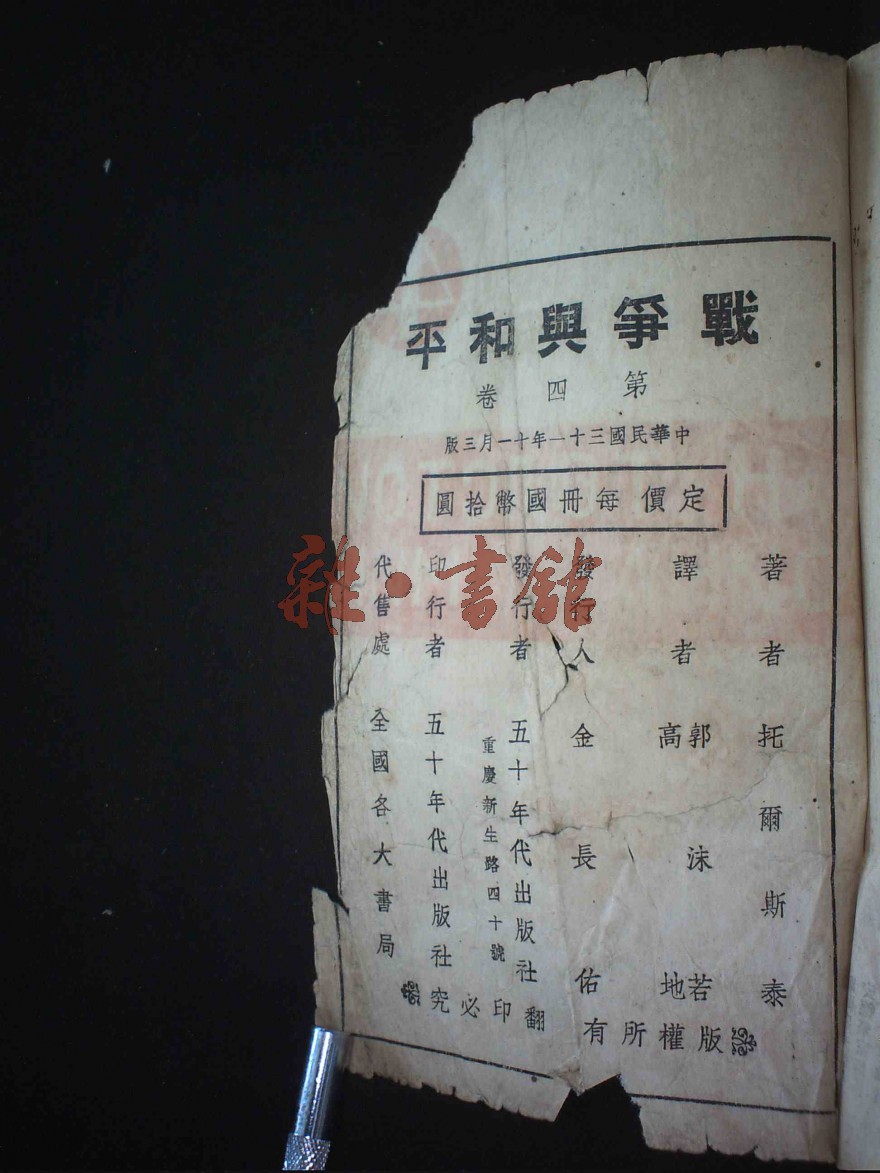 戰爭與和平
第四卷
中華民國三十一年十一月三版
定價每冊國幣拾圓
著者 托爾斯泰
譯者 郭沫若 高地
發行人 金長佑
發行者 五十年代出版社
重慶新生路四十號
印行者 五十年代出版社
代售處 全國各大書局
版權所有
翻印必究
雜·書館